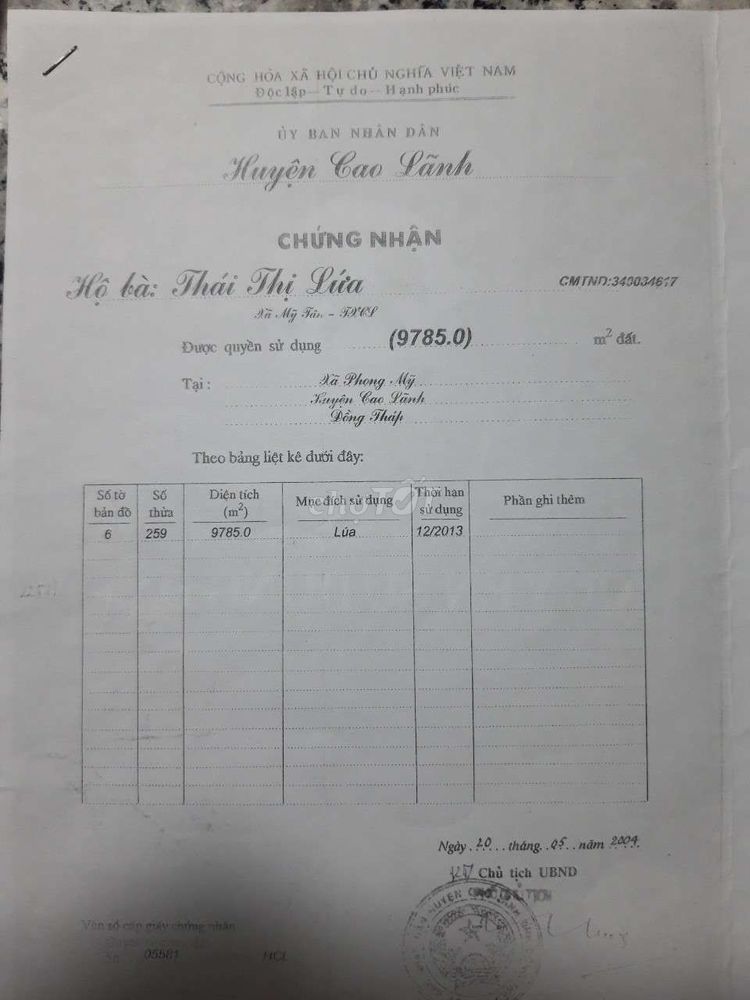 CỘNG HÒA XÃ HỘI CHỦ NGHĨA VIỆT NAM
Độc lập - Tự do - Hạnh phúc
ỦY BAN NHÂN DÂN
Huyện Cao Lãnh
CHỨNG NHẬN
Hộ bà: Thái Thị Lứa CMTND:340034617
Xã Mỹ Tân - TXCL
Được quyền sử dụng (9785.0) m² đất.
Tại : Xã Phong Mỹ
Huyện Cao Lãnh
Đồng Tháp
Theo bảng liệt kê dưới đây:
Số tờ bản đồ Số thửa Diện tích (m²) Mục đích sử dụng Thời hạn sử dụng Phần ghi thêm
6 259 9785.0 Lúa 12/2013
chợTỐT
Ngày 20 tháng 05 năm 2004
KT Chủ tịch UBND
Vào sổ cấp giấy chứng nhận
Số 05581 HCL